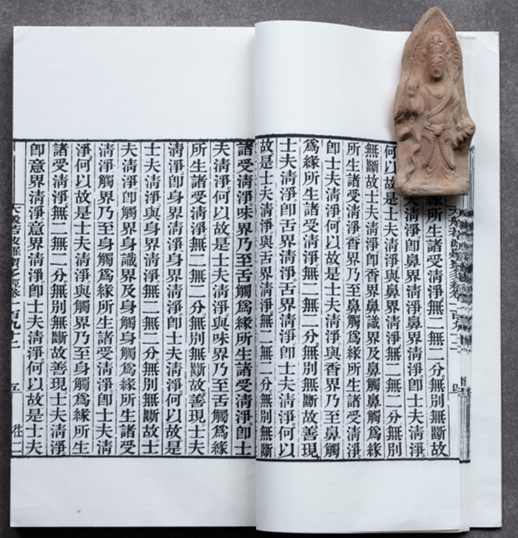 緣所生諸受清淨無二無二分無別無斷故
夫清淨即鼻界清淨鼻界清淨即士夫清淨
何以故是士夫清淨與鼻界清淨無二無二分無別
無斷故士夫清淨即香界鼻識界及鼻觸鼻觸為緣
所生諸受清淨香界乃至鼻觸為緣所生諸受清淨
即士夫清淨何以故是士夫清淨與香界乃至鼻觸
為緣所生諸受清淨無二無二分無別無斷故善現
士夫清淨即舌界清淨舌界清淨即士夫清淨何以
故是士夫清淨與舌界清淨無二無二分無別無斷
諸受清淨味界乃至舌觸為緣所生諸受清淨即士
夫清淨何以故是士夫清淨與味界乃至舌觸為緣
所生諸受清淨無二無二分無別無斷故善現士夫
清淨即身界清淨身界清淨即士夫清淨何以故是
士夫清淨與身界清淨無二無二分無別無斷故士
夫清淨即觸界身識界及身觸身觸為緣所生諸受
清淨觸界乃至身觸為緣所生諸受清淨即士夫清
淨何以故是士夫清淨與觸界乃至身觸為緣所生
諸受清淨無二無二分無別無斷故善現士夫清淨
即意界清淨意界清淨即士夫清淨何以故是士夫